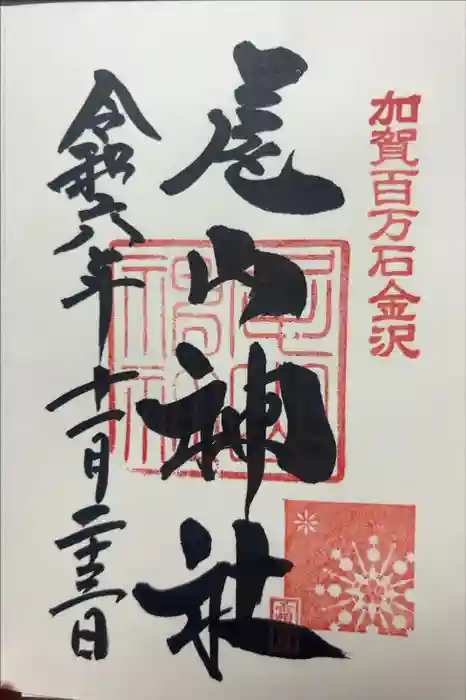 加賀百万石金沢
尾山神社
令和六年十一月二十三日